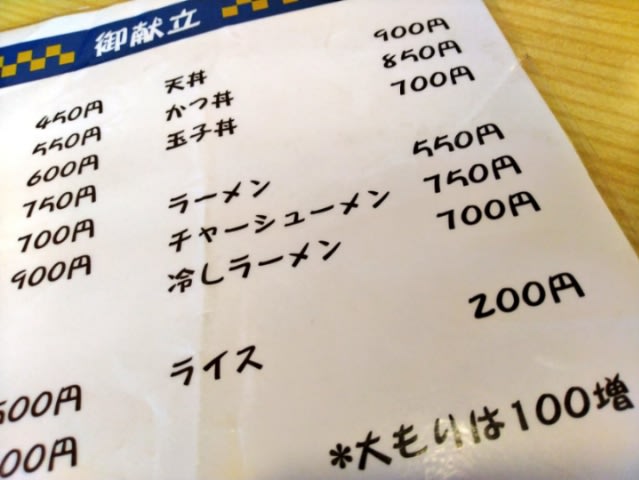 御献立
450円
550円
600円
750円
700円
900円
天丼 900円
かつ丼 850円
玉子丼 700円
ラーメン 550円
チャーシューメン 750円
冷しラーメン 700円
ライス 200円
*大もりは100増